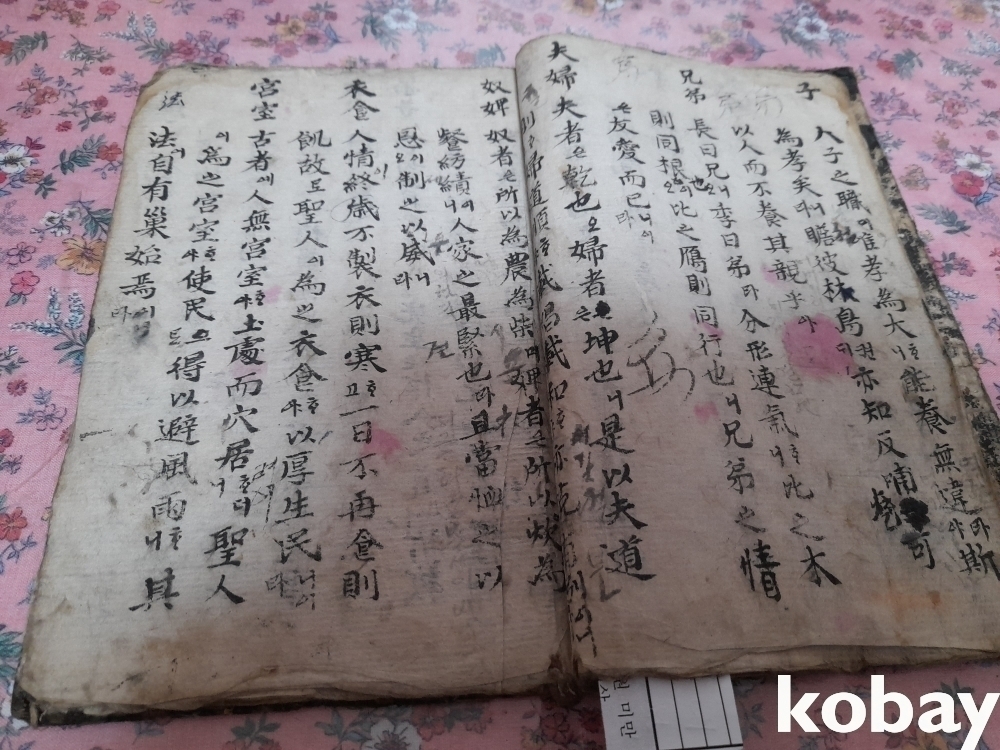 子 人子之職이惟孝為大니ᄒᆞ能養無違라사斯
為孝矣라 瞻彼林烏 亦知反哺 可
以人而不養其親乎아
兄弟 長曰兄也오季曰弟라分形連氣니ᄒᆞ比之木
則同根이오比之鴈則同行也니兄弟之情
은友愛而已니라
夫婦 夫者은乾也오婦者은坤也니是以夫道
奴婢 奴者은所以為農為柴며婢者은所以炊為
督紡績니人家之最緊也라且當恤之以
恩이오制之以威니라
衣食 人情이終歲不製衣則寒고ᄒᆞ一日不再食則
飢故로聖人이為之衣食사ᄒᆞ以厚生民니라
宮室 古者에人無宮室사ᄒᆞ土處而穴居더니聖人
이為之宮室사ᄒᆞ使民으로得以避風雨니ᄒᆞ其
法 法이自有巢始焉이라
원 미만
사
kobay